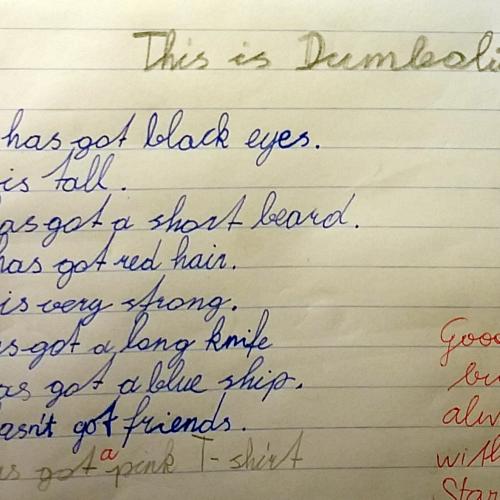 This is Dumboli
has got black eyes.
is tall.
as got a short beard.
has got red hair.
is very strong.
as got a long knife
as got a blue ship.
asn't got friends.
as got a pink T-shirt
Good
bu
alw
with
Star